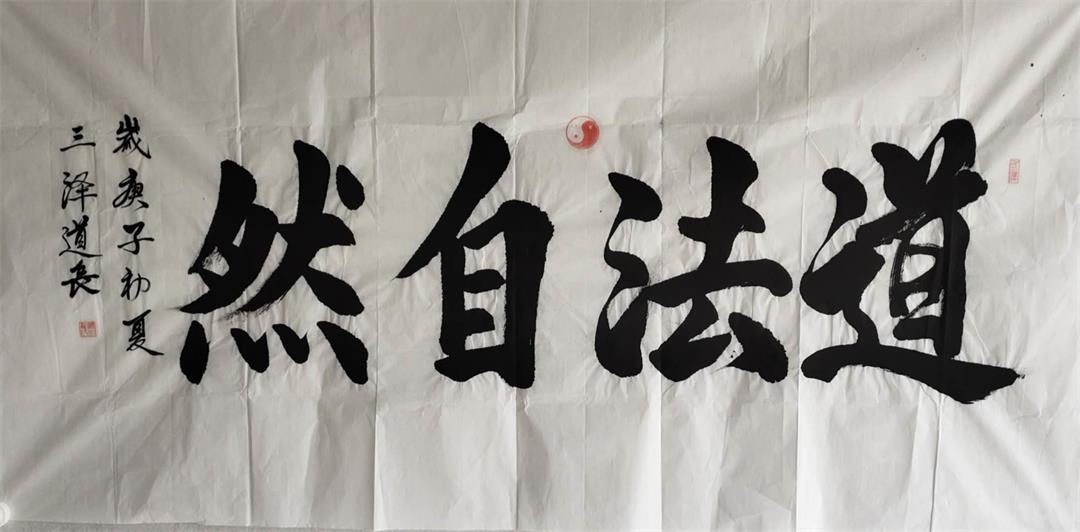 道法自然
岁庚子初夏
三泽道长